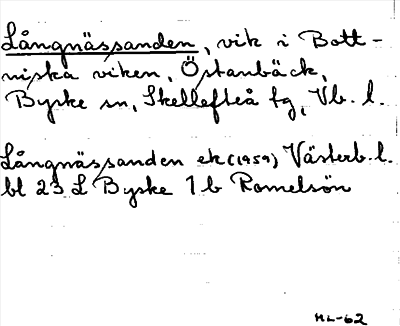 Långnässanden, vik i Bott-
niska viken, Östanbäck,
Byske sn, Skellefteå tg, Vb. l.
Långnässanden ek (1959) Västerb. l.
bl 23 L Byske 1 b Romelsön
HL-62